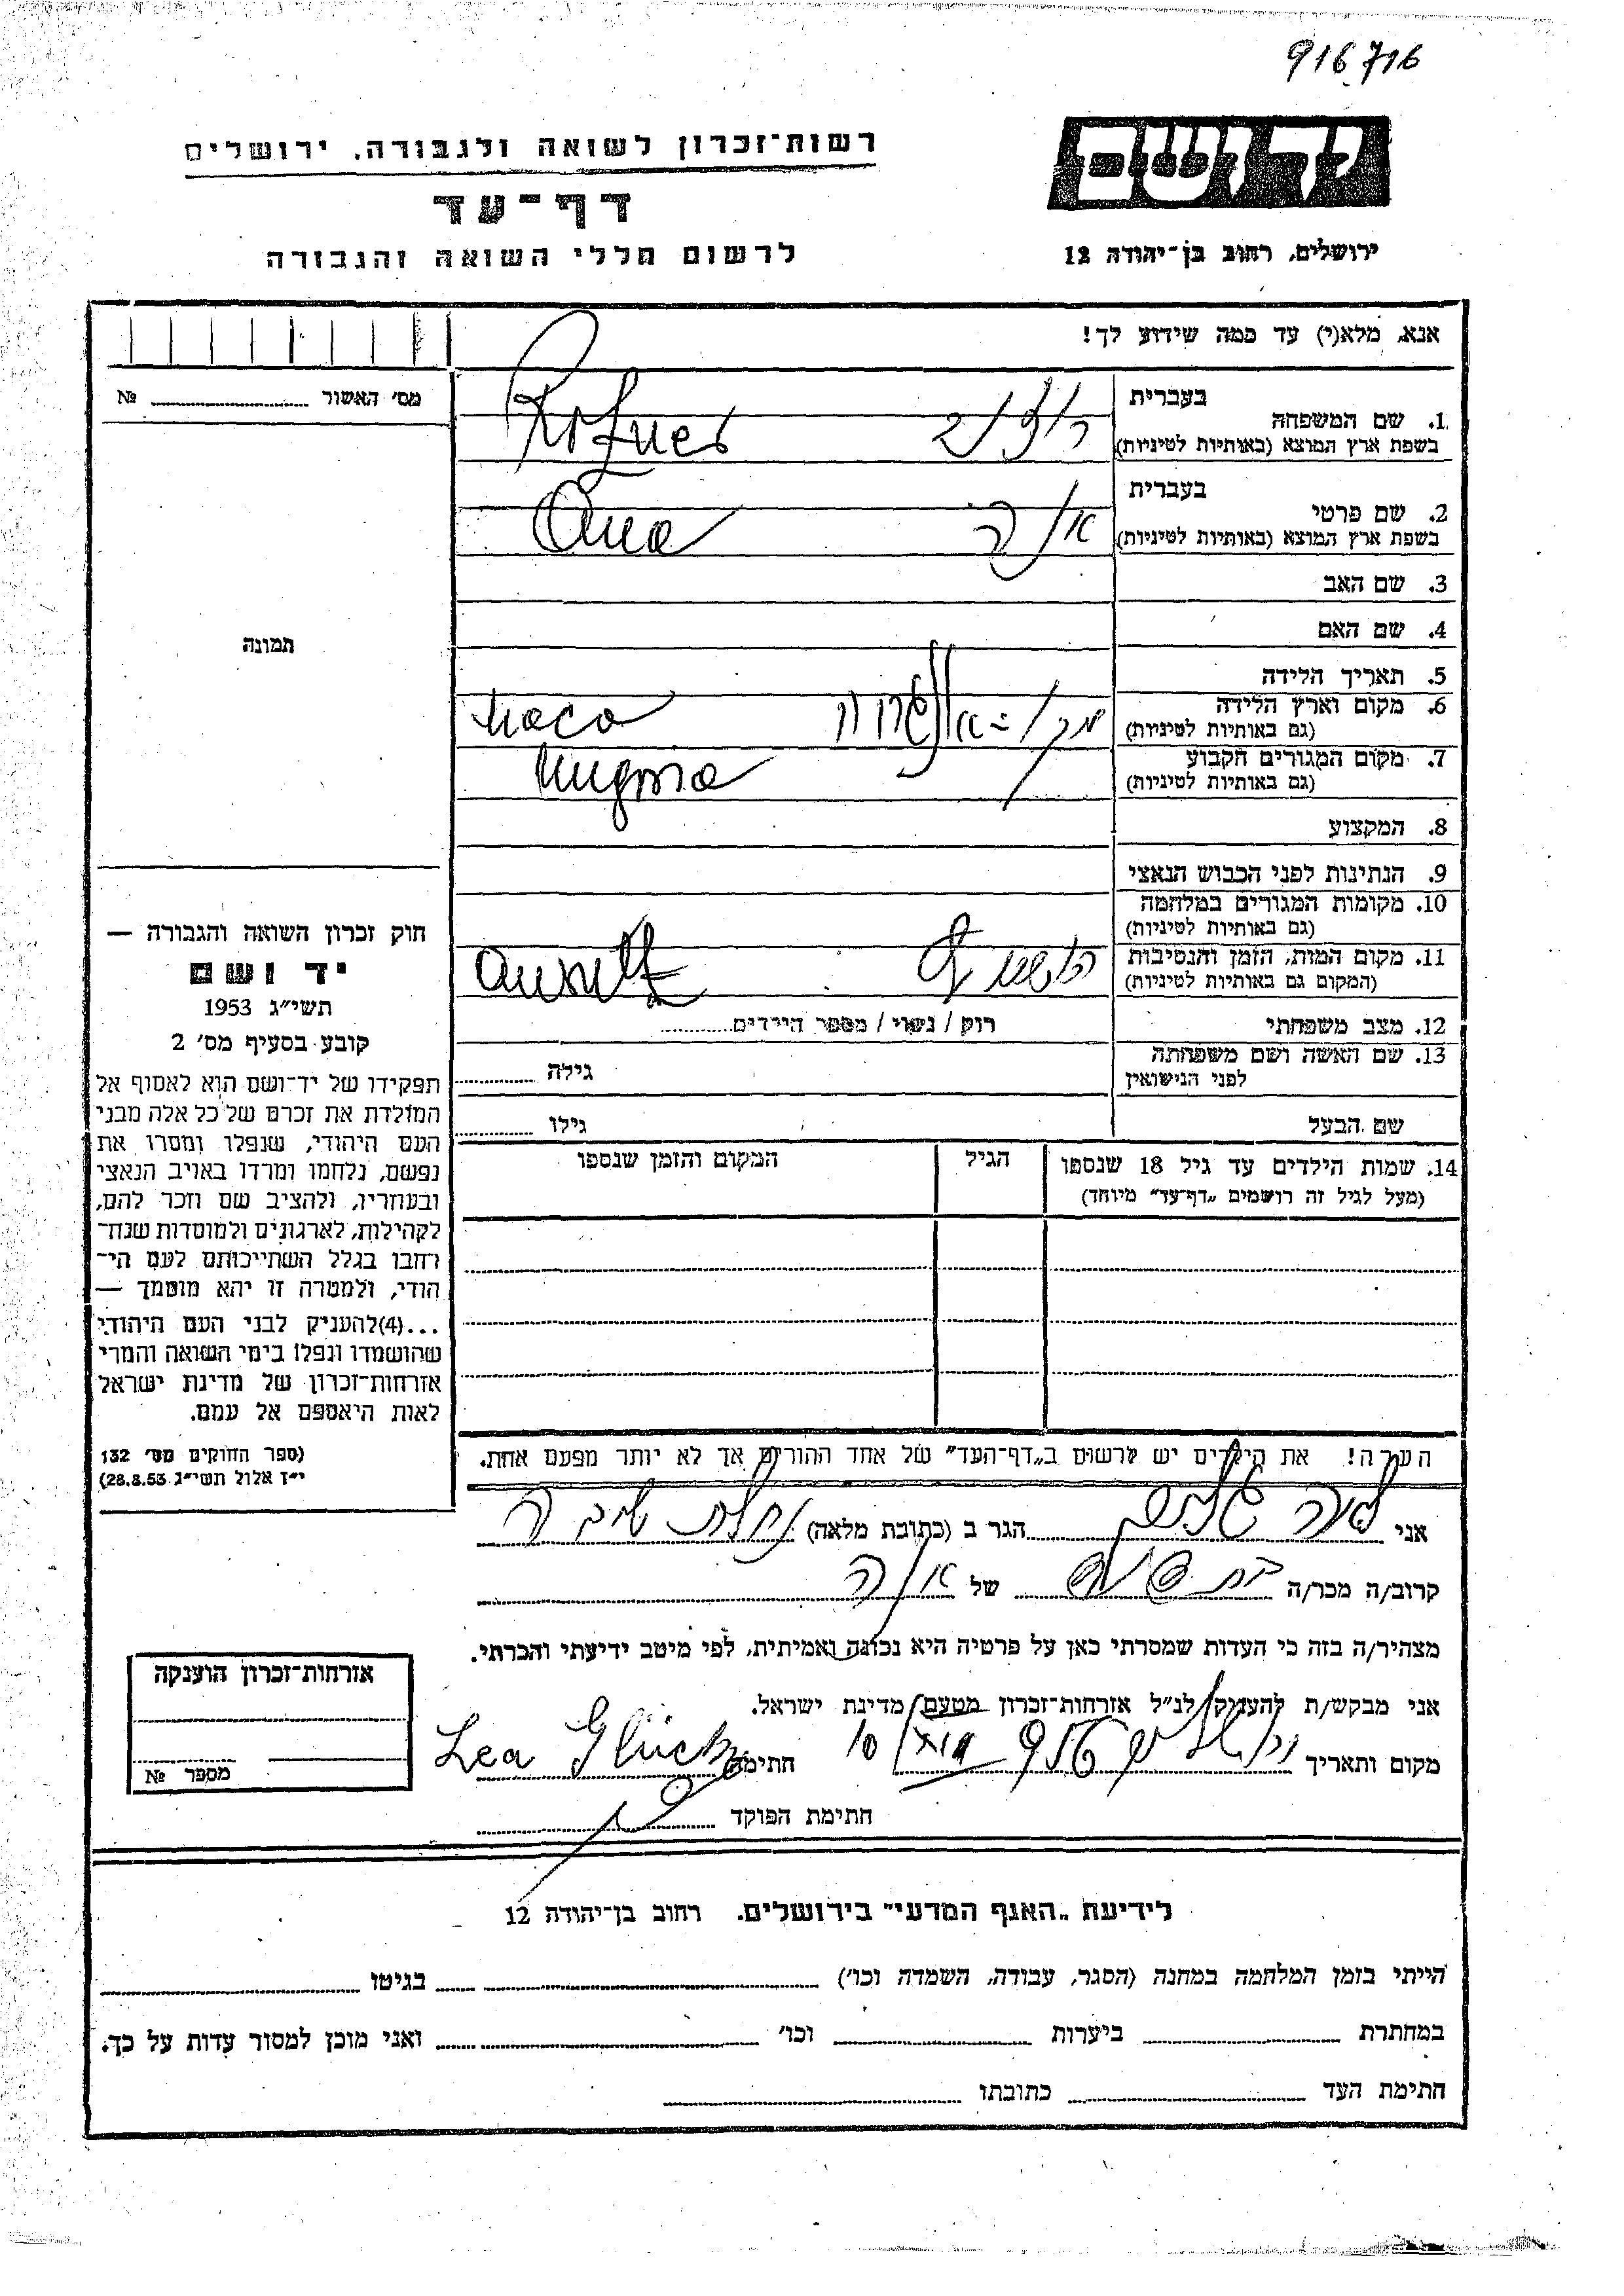 916716
רשות־זכרון לשואה ולגבורה, ירושלים
דף־עד
לרשום חללי השואה והגבורה
יד ושם
ירושלים, רחוב בן־יהודה 12
אנא, מלא(י) עד כמה שידוע לך!
מס׳ האשור № 
1. שם המשפחה
בעברית
בשפת ארץ המוצא (באותיות לטיניות)
2. שם פרטי
בעברית
בשפת ארץ המוצא (באותיות לטיניות)
אנה
Ana
3. שם האב
4. שם האם
5. תאריך הלידה
6. מקום וארץ הלידה
(גם באותיות לטיניות)
7. מקום המגורים הקבוע
(גם באותיות לטיניות)
8. המקצוע
9. הנתינות לפני הכבוש הנאצי
10. מקומות המגורים במלחמה
(גם באותיות לטיניות)
11. מקום המות, הזמן והנסיבות
(המקום גם באותיות לטיניות)
12. מצב משפחתי
רוק / נשוי / מספר הילדים
13. שם האשה ושם משפחתה
לפני הנישואין
גילה
שם הבעל
גילו
14. שמות הילדים עד גיל 18 שנספו
(מעל לגיל זה רושמים „דף־עד” מיוחד)
הגיל
המקום והזמן שנספו
תמונה
חוק זכרון השואה והגבורה —
יד ושם
תשי״ג 1953
קובע בסעיף מס׳ 2
תפקידו של יד־ושם הוא לאסוף אל
המולדת את זכרם של כל אלה מבני
העם היהודי, שנפלו ומסרו את
נפשם, נלחמו ומרדו באויב הנאצי
ובעוזריו, ולהציב שם וזכר להם,
לקהילות, לארגונים ולמוסדות שנח־
רחבו בגלל השתייכותם לעם הי־
הודי, ולמטרה זו יהא מוסמך —
...(4)להעניק לבני העם היהודי
שהושמדו ונפלו בימי השואה והמרי
אזרחות־זכרון של מדינת ישראל
לאות היאספם אל עמם.
(ספר החוקים מס׳ 132
י״ז אלול תשי״ג 28.8.53)
הערה! את הילדים יש לרשום ב„דף־העד” של אחד ההורים אך לא יותר מפעם אחת.
אני
הגר ב (כתובת מלאה)
קרוב/ה מכר/ה
של אנה
מצהיר/ה בזה כי העדות שמסרתי כאן על פרטיה היא נכונה ואמיתית, לפי מיטב ידיעתי והכרתי.
אני מבקש/ת להעניק לנ״ל אזרחות־זכרון מטעם מדינת ישראל.
מקום ותאריך
חתימה Lea Glück
חתימת הפוקד
אזרחות־זכרון הוענקה
מספר №
לידיעת „האגף המדעי” בירושלים. רחוב בן־יהודה 12
הייתי בזמן המלחמה במחנה (הסגר, עבודה, השמדה וכו׳) בגיטו
במחתרת ביערות וכו׳ ואני מוכן למסור עדות על כך.
חתימת העד כתובתו